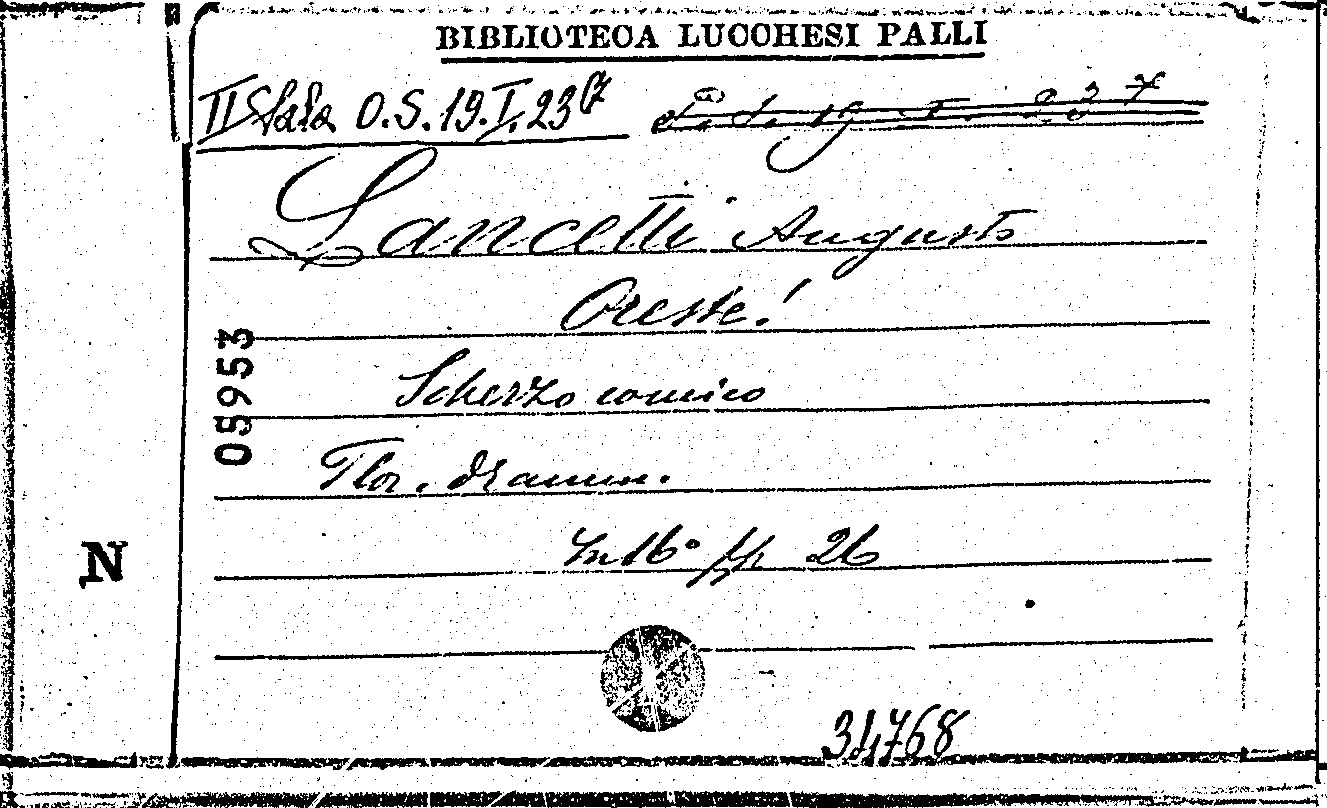 BIBLIOTECA LUCCHESI PALLI
II Sala O.S.19.I.23(7
Lancetti Augusto
Oreste!
Scherzo comico
05953
Flor. dramm.
In 16° pp 26
N
34768